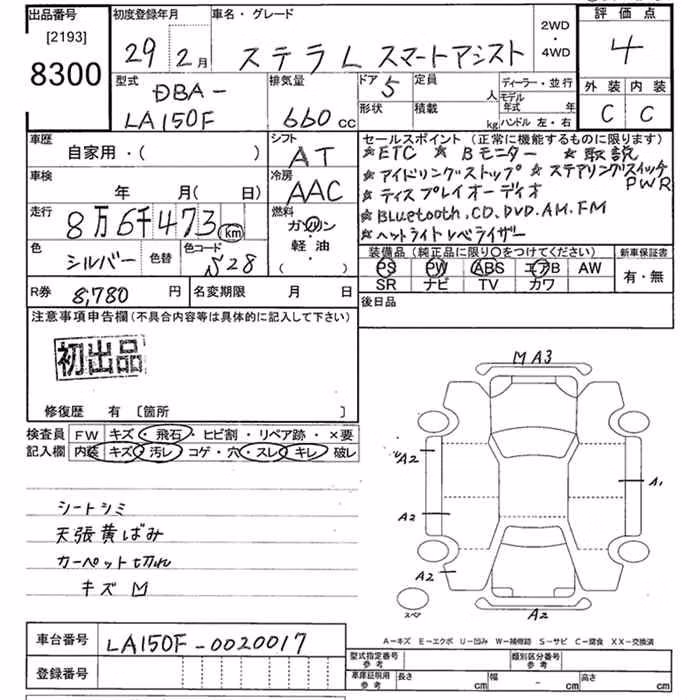 出品番号 初度登録年月 車名・グレード 2WD・4WD 評価点
[2193]
8300
29年 2月 ステラ L スマートアシスト 4
型式 DBA- 排気量 ドア 5 定員 人 ディーラー・並行 外装 内装
LA150F 660cc 形状 積載 kg モデル年式 年 ハンドル 左・右 C C
車歴 シフト セールスポイント (正常に機能するものに限ります)
自家用・( ) AT ☆ETC ☆Bモニター ☆取説
車検 冷房 ☆アイドリングストップ ☆ステアリングスイッチ
年 月(日) AAC ☆ディスプレイオーディオ PWR
走行 燃料 ☆Bluetooth.CD.DVD.AM.FM
8万6千473km ガソリン・軽油・( ) ☆ヘッドライトレベライザー
色 シルバー 色替 色コード S28 装備品 (純正品に限り○をつけてください) 新車保証書
PS PW ABS エアB AW 有・無
SR ナビ TV カワ
R券 8,780円 名変期限 月 日 後日品
注意事項申告欄(不具合内容等は具体的に記入して下さい)
初出品
修復歴 有 [箇所 ]
検査員 FW キズ・飛石・ヒビ割・リペア跡・×要
記入欄 内装 キズ・汚レ・コゲ・穴・スレ・キレ・破レ
シートシミ
天張黄ばみ
カーペット切れ
キズ M
M A3
A2
A1
A2
A2
スペア
A2
A-キズ E-エクボ U-凹み W-補修跡 S-サビ C-腐食 XX-交換済
車台番号 LA150F-0020017
登録番号
型式指定番号 参考 類別区分番号 参考
車庫証明用 参考 長さ cm 幅 cm 高さ cm